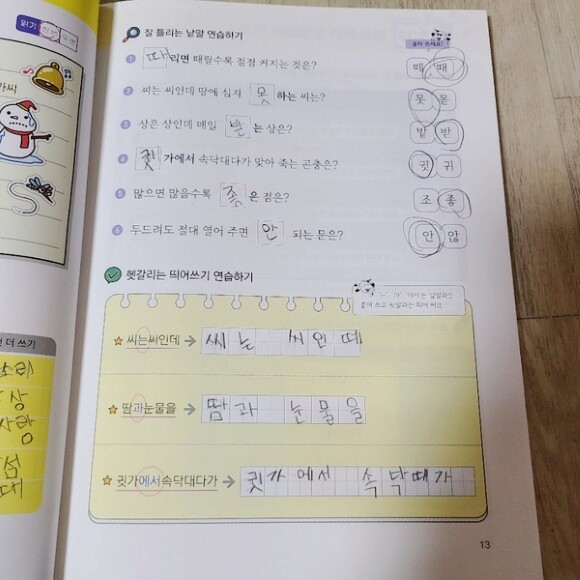 읽기
잘 틀리는 낱말 연습하기
골라 쓰세요!
1 때리면 때릴수록 점점 커지는 것은? 떼 때
2 씨는 씨인데 땅에 심지 못하는 씨는? 못 몯
3 상은 상인데 매일 받는 상은? 밭 받
4 귓가에서 속닥대다가 맞아 죽는 곤충은? 귓 귀
5 많으면 많을수록 좋은 점은? 조 좋
6 두드려도 절대 열어 주면 안 되는 문은? 안 않
헷갈리는 띄어쓰기 연습하기
붙여 쓰고 뒷말과는 띄어 써요.
씨는씨인데 → 씨는 씨인떼
땀과눈물을 → 땀과 눈물을
귓가에서속닥대다가 → 귓가에서 속닥때가
더 쓰기
소리
상
사랑
섬
대
13